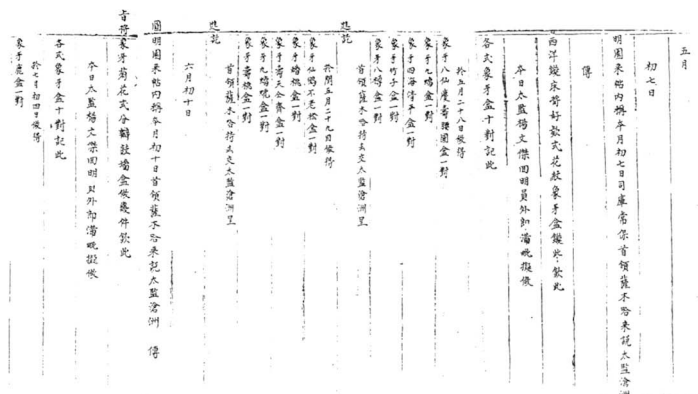 五月
初七日
明園來帖內稱本月初七日司庫常保首領薩木哈來說太監滄洲
傳
西洋鏇床着好款式花紋象牙盒鏇些欽此
本日太監楊文傑回明員外郎滿毗擬做
各式象牙盒十對記此
於五月二十八日做得
象牙八仙慶壽盒一對
象牙九盒一對
象牙四海清平盒一對
象牙竹子盒一對
象牙八盒一對
首領薩木哈持去交太監滄洲呈
進訖
於閏五月二十九日做得
象牙仙鶴不老松盒一對
象牙盒一對
象牙壽天合齊盒一對
象牙九盒一對
象牙壽桃盒一對
首領薩木哈持去交太監滄洲呈
進訖
六月初十日
圓明園來帖內稱本月初十日首領薩木哈來說太監滄洲 傳
旨將象牙菊花式分瓣盒做幾件欽此
本日太監楊文傑回明員外郎滿毗擬做
各式象牙盒十對記此
於七月初四日做得
象牙盒一對